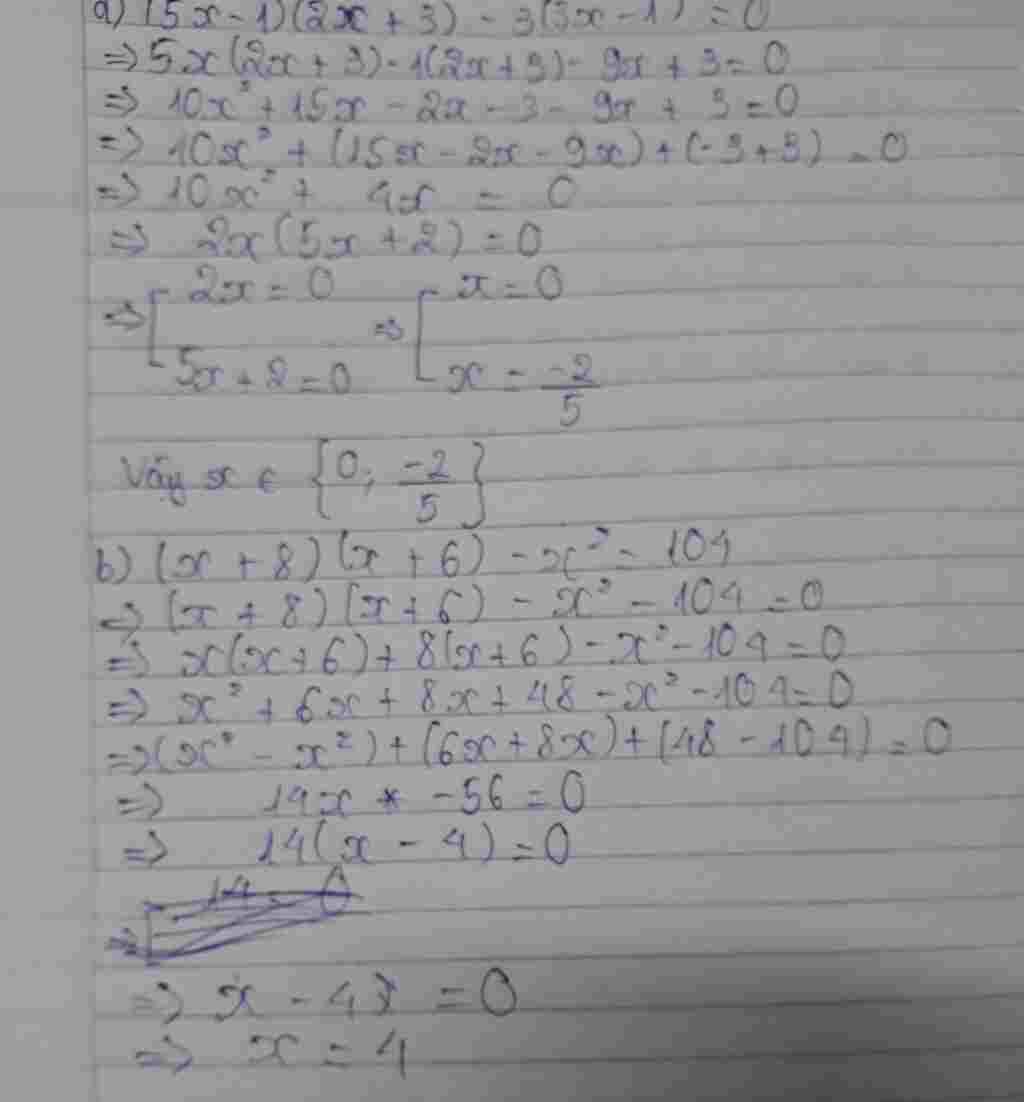 a) (5x-1)(2x+3) - 3(3x-1) = 0
=> 5x(2x+3) - 1(2x+3) - 9x + 3 = 0
=> 10x² + 15x - 2x - 3 - 9x + 3 = 0
=> 10x² + (15x - 2x - 9x) + (-3+3) = 0
=> 10x² + 4x = 0
=> 2x(5x+2) = 0
=> [ 2x = 0 => [ x = 0
5x + 2 = 0 x = -2/5
Vậy x ∈ {0; -2/5}
b) (x + 8)(x + 6) - x² = 104
=> (x + 8)(x + 6) - x² - 104 = 0
=> x(x+6) + 8(x+6) - x² - 104 = 0
=> x² + 6x + 8x + 48 - x² - 104 = 0
=> (x² - x²) + (6x + 8x) + (48 - 104) = 0
=> 14x - 56 = 0
=> 14(x - 4) = 0
=> x - 4 = 0
=> x = 4